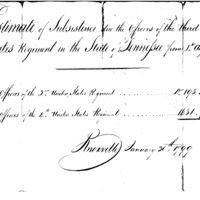 stimate of Subsistence for the Officers of the Third
ates Regiment in the State of Tennessee from 1st
Officers of the 3d United States Regiment
Officers of the 4th United States Regiment
Knoxville January 30th 1799